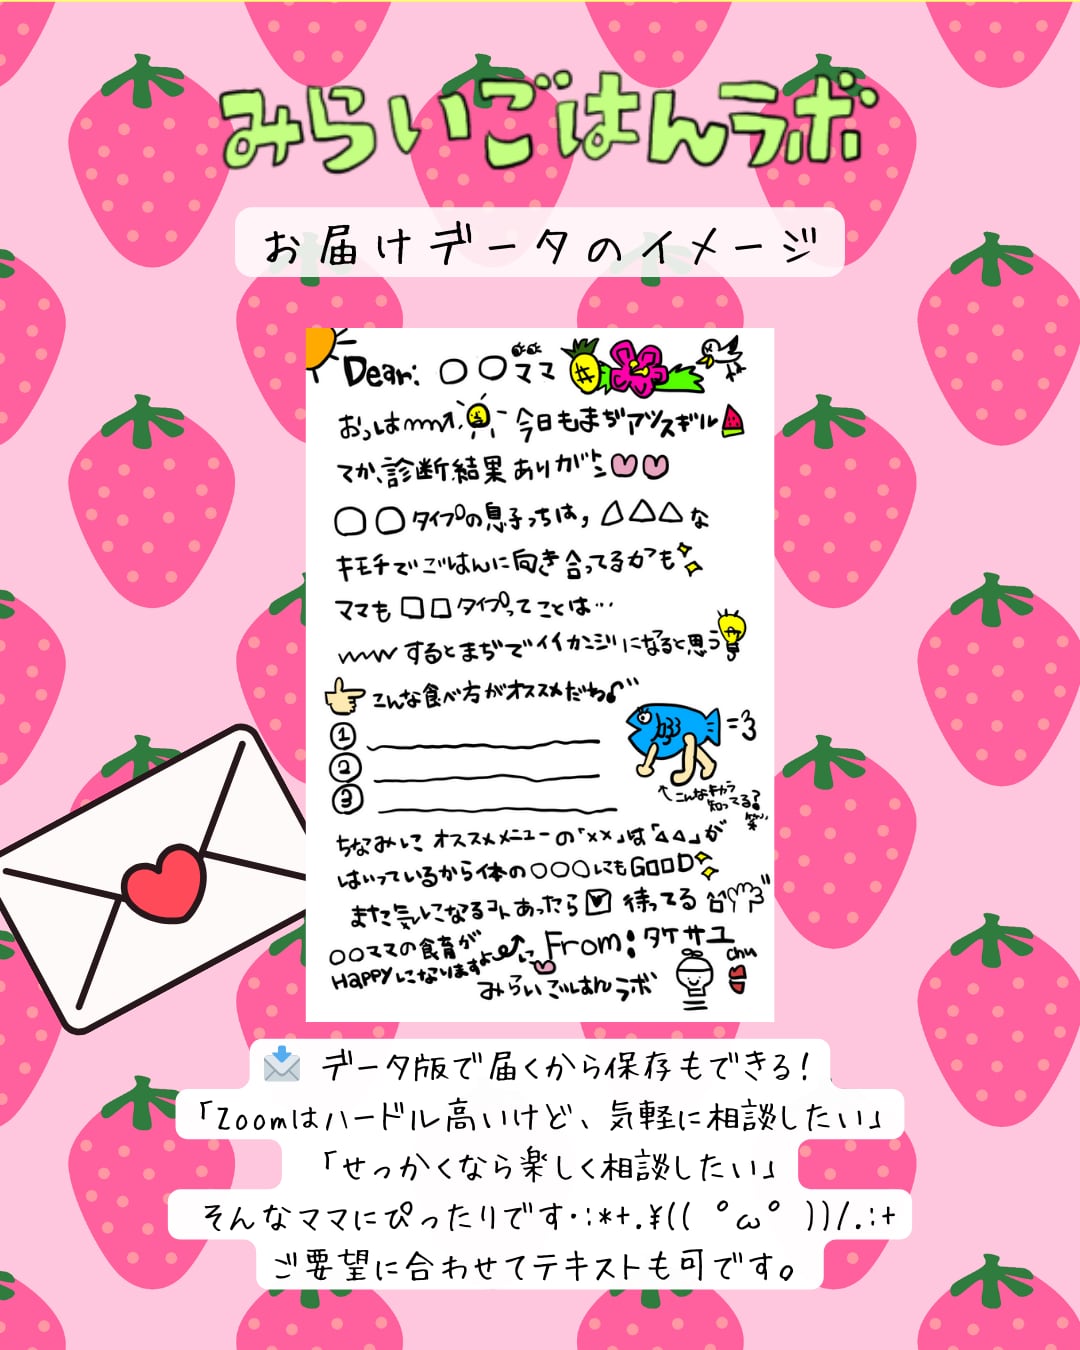 みらいごはんラボ
お届けデータのイメージ
Dear: ○○ママ
おっは〰↗ 今日もまぢアツスギル
てか、診断結果ありがトン
○○タイプの息子っちは, △△△な
キモチでごはんに向き合ってるかも
ママも□□タイプってことは…
〰するとまぢでイイカンジになると思う
こんな食べ方がオススメだわ♪"
①
②
③
=3
↑こんなキャラ
知ってる?
笑
ちなみに オススメメニューの「××」は「△△」が
はいっているから体の○○○にもGOOD
また気になるコトあったら 待ってる
○○ママの食育が
HAPPYになりますよ〜に
From: タケサユ
みらいごはんラボ
chu
データ版で届くから保存もできる!
「Zoomはハードル高いけど、気軽に相談したい」
「せっかくなら楽しく相談したい」
そんなママにぴったりです･:*+.\(( °ω° ))/.:+
ご要望に合わせてテキストも可です。